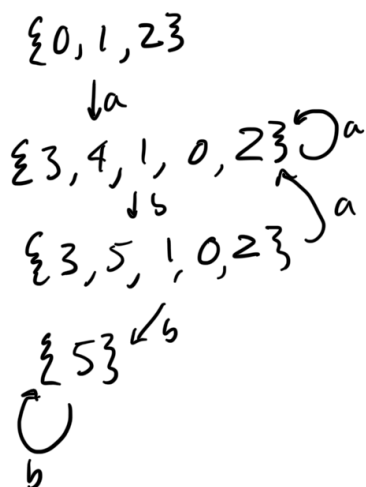 {0, 1, 2}
a
{3, 4, 1, 0, 2} a
b
a
{3, 5, 1, 0, 2}
b
{5}
b